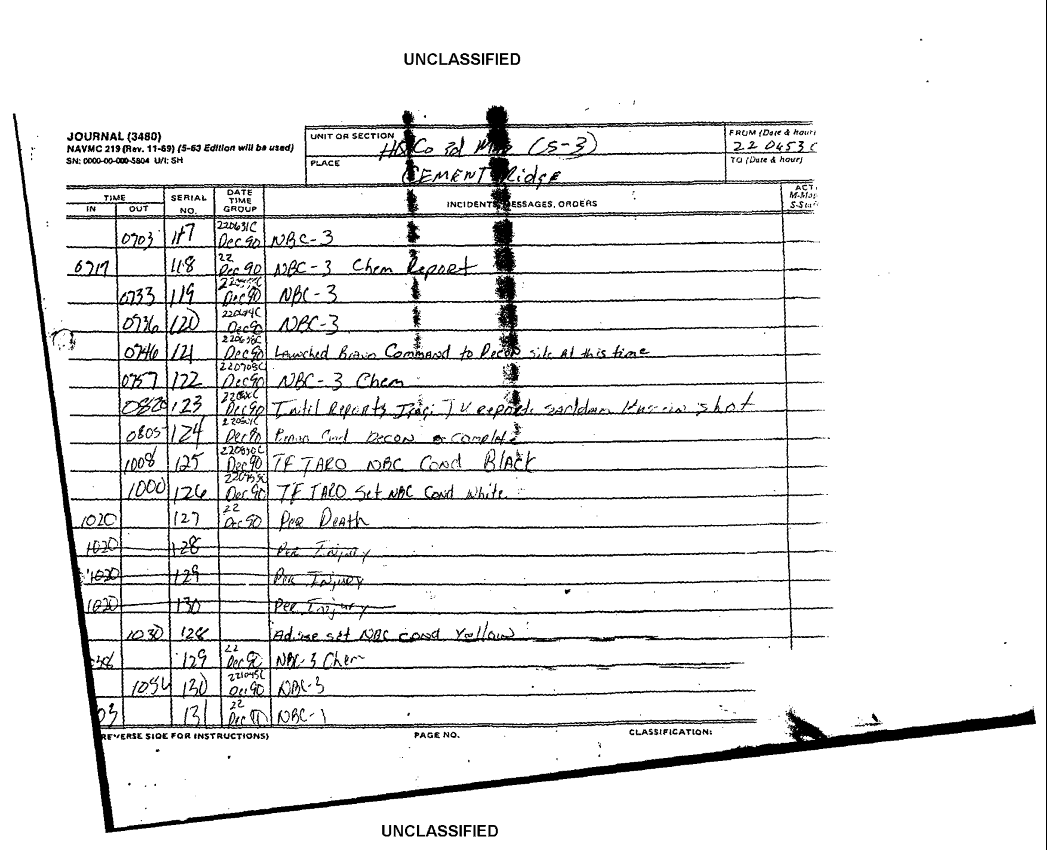 UNCLASSIFIED
JOURNAL (3480)
NAVMC 219 (Rev. 11-69) (5-63 Edition will be used)
SN: 0000-00-000-5804 U/I: SH
UNIT OR SECTION
(S-3)
FROM (Date & hour)
220453C
PLACE
CEMENT Ridge
TO (Date & hour)
TIME SERIAL NO. DATE TIME GROUP INCIDENTS, MESSAGES, ORDERS
IN OUT
0703 117 220631C Dec 90 NBC-3
0717 118 22 Dec 90 NBC-3 Chem Report
0733 119 Dec 90 NBC-3
0736 120 Dec 90 NBC-3
0746 121 Dec 90 Launched Bravo Command to Decon site At this time
0757 122 220708C Dec 90 NBC-3 Chem
0820 123 Dec 90 Intel Reports Iraqi TV reports shot
0805 124 Dec 90 Decon complete
1008 125 Dec 90 TF TARO NBC Cond Black
1000 126 Dec 90 TF TARO Set NBC Cond White
1020 127 22 Dec 90 Per Death
1020 128 Per Injury
1020 129 Per Injury
1020 130 Per Injury
1030 128 set NBC cond Yellow
129 22 Dec 90 NBC-3 Chem
130 221045C Dec 90 NBC-3
131 22 Dec NBC-1
REVERSE SIDE FOR INSTRUCTIONS) PAGE NO. CLASSIFICATION:
UNCLASSIFIED